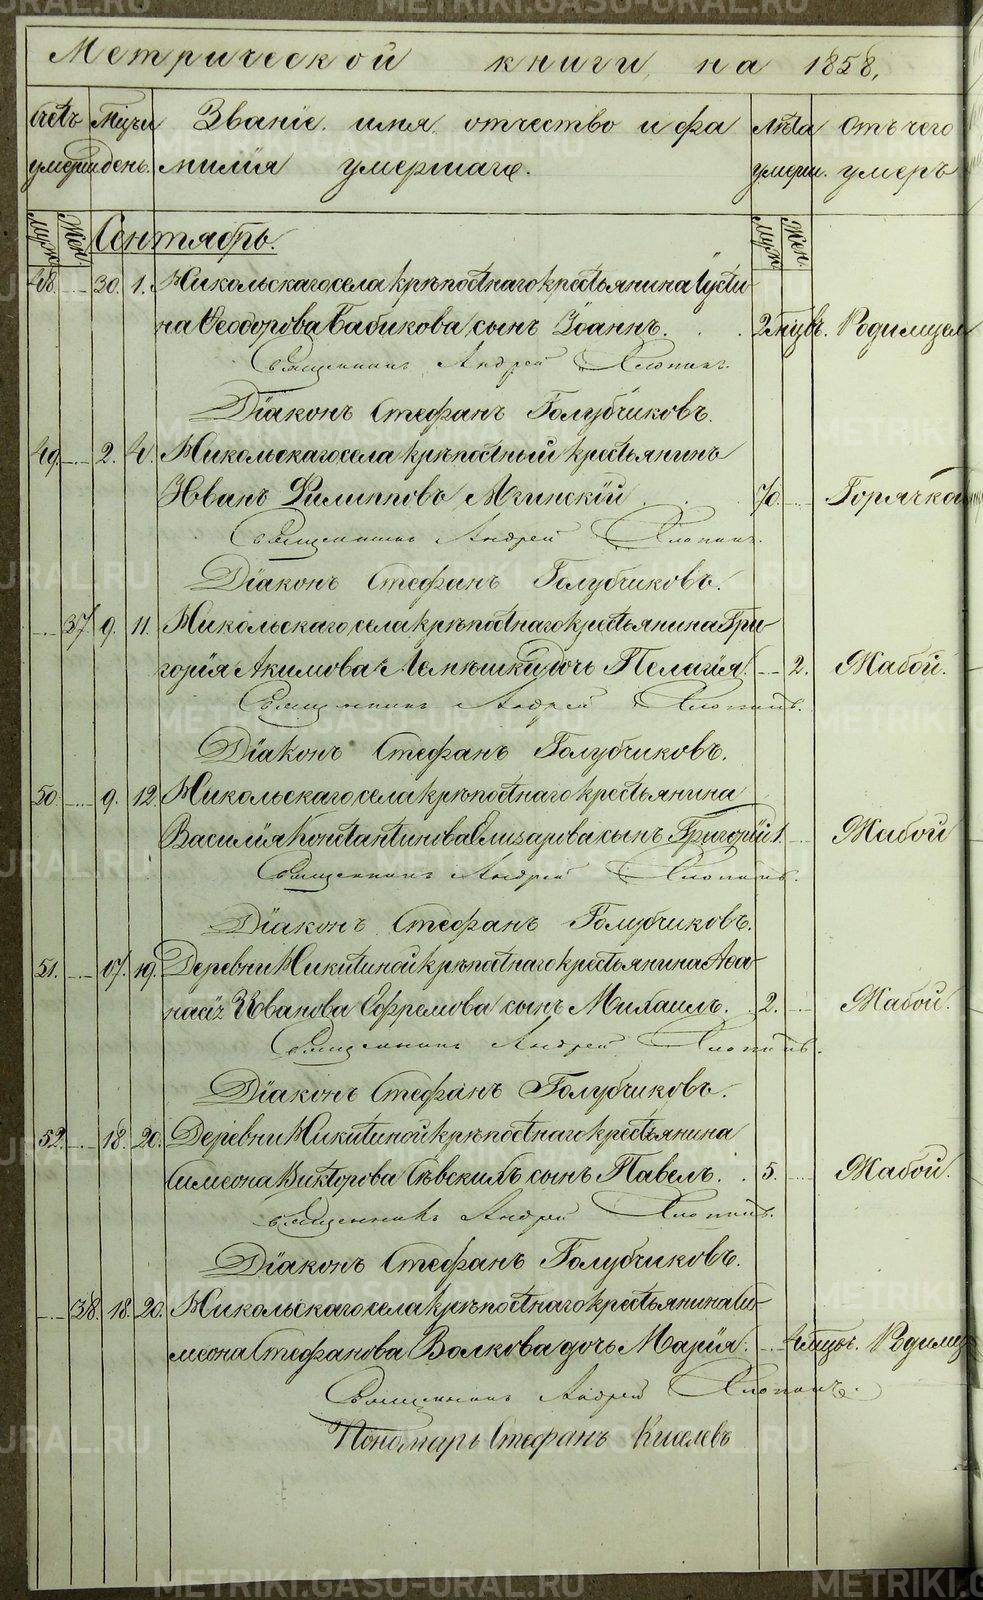 Метрической книги, на 1858,
Счетъ Мцъ и Званіе, имя, отчество и фа Лѣта Отъ чего
умерш день. милія умершаго. умерш. умеръ
Муж. Жен. Сентябрь. Муж. Жен.
48. 30. 1. Никольскаго села крѣпостнаго крестьянина Іусти-
на Ѳеодорова Бабикова, сынъ Іоаннъ. 2 мцвъ. Родимцем
Священникъ Андрей Хлопинъ.
Діаконъ Стефанъ Голубчиковъ.
49. 2. 4. Никольскаго села крѣпостный крестьянинъ
Иванъ Филипповъ Мчинскій 70. Горячкой
Священникъ Андрей Хлопинъ.
Діаконъ Стефанъ Голубчиковъ.
37. 9. 11. Никольскаго села крѣпостнаго крестьянина Гри-
горія Акимова дочь Пелагія. 2. Жабой.
Священникъ Андрей Хлопинъ.
Діаконъ Стефанъ Голубчиковъ.
50. 9. 12. Никольскаго села крѣпостнаго крестьянина
Василія Константинова Елизарова сынъ Григорій 1. Жабой
Священникъ Андрей Хлопинъ.
Діаконъ Стефанъ Голубчиковъ.
51. 17. 19. Деревни Никитиной крѣпостнаго крестьянина Аѳа-
насія Иванова Ефремова сынъ Михаилъ. 2. Жабой.
Священникъ Андрей Хлопинъ.
Діаконъ Стефанъ Голубчиковъ.
52. 18. 20. Деревни Никитиной крѣпостнаго крестьянина
Симеона Викторова сынъ Павелъ. 5. Жабой.
Священникъ Андрей Хлопинъ.
Діаконъ Стефанъ Голубчиковъ.
38. 18. 20. Никольскаго села крѣпостнаго крестьянина Си-
меона Стефанова Волкова дочь Марія. 4 мцвъ. Родимц
Священникъ Андрей Хлопинъ.
Пономарь Стефанъ Киселевъ
METRIKI.GASO-URAL.RU